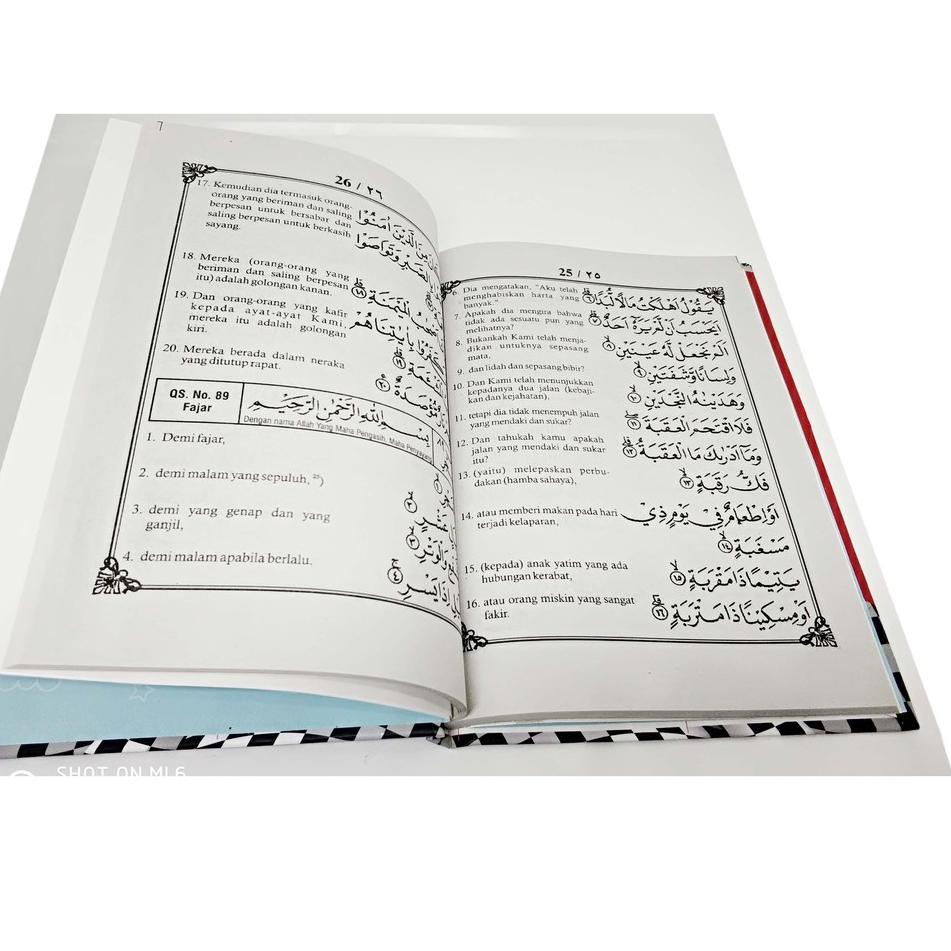 25 / ٢٥
6. Dia mengatakan, "Aku telah
menghabiskan harta yang
banyak."
يَقُوْلُ اَهْلَكْتُ مَالًا لُّبَدًاۗ ٦
7. Apakah dia mengira bahwa
tidak ada sesuatu pun yang
melihatnya?
اَيَحْسَبُ اَنْ لَّمْ يَرَهٗٓ اَحَدٌۗ ٧
8. Bukankah Kami telah menja-
dikan untuknya sepasang
mata,
اَلَمْ نَجْعَلْ لَّهٗ عَيْنَيْنِۙ ٨
9. dan lidah dan sepasang bibir?
وَلِسَانًا وَّشَفَتَيْنِۙ ٩
10. Dan Kami telah menunjukkan
kepadanya dua jalan (kebaji-
kan dan kejahatan),
وَهَدَيْنٰهُ النَّجْدَيْنِۙ ١٠
11. tetapi dia tidak menempuh jalan
yang mendaki dan sukar?
فَلَا اقْتَحَمَ الْعَقَبَةَۖ ١١
12. Dan tahukah kamu apakah
jalan yang mendaki dan sukar
itu?
وَمَآ اَدْرٰىكَ مَا الْعَقَبَةُۗ ١٢
13. (yaitu) melepaskan perbu-
dakan (hamba sahaya),
فَكُّ رَقَبَةٍۙ ١٣
14. atau memberi makan pada hari
terjadi kelaparan,
اَوْ اِطْعَامٌ فِيْ يَوْمٍ ذِيْ
مَسْغَبَةٍۙ ١٤
15. (kepada) anak yatim yang ada
hubungan kerabat,
يَّتِيْمًا ذَا مَقْرَبَةٍۙ ١٥
16. atau orang miskin yang sangat
fakir.
اَوْ مِسْكِيْنًا ذَا مَتْرَبَةٍۗ ١٦
26 / ٢٦
17. Kemudian dia termasuk orang-
orang yang beriman dan saling
berpesan untuk bersabar dan
saling berpesan untuk berkasih
sayang.
مِنَ الَّذِيْنَ اٰمَنُوْا
وَتَوَاصَوْا
18. Mereka (orang-orang yang
beriman dan saling berpesan
itu) adalah golongan kanan.
الْمَيْمَنَةِۗ ١٨
19. Dan orang-orang yang kafir
kepada ayat-ayat Kami,
mereka itu adalah golongan
kiri.
كَفَرُوْا بِاٰيٰتِنَا هُمْ
١٩
20. Mereka berada dalam neraka
yang ditutup rapat.
مُّؤْصَدَةٌ ٢٠
QS. No. 89
Fajar
بِسْمِ اللّٰهِ الرَّحْمٰنِ الرَّحِيْمِ
Dengan nama Allah Yang Maha Pengasih, Maha Penyayang
1. Demi fajar,
١
2. demi malam yang sepuluh, ²⁵)
عَشْرٍۙ ٢
3. demi yang genap dan yang
ganjil,
وَالْوَتْرِۙ ٣
4. demi malam apabila berlalu.
اِذَا يَسْرِۚ ٤
SHOT ON MI 6